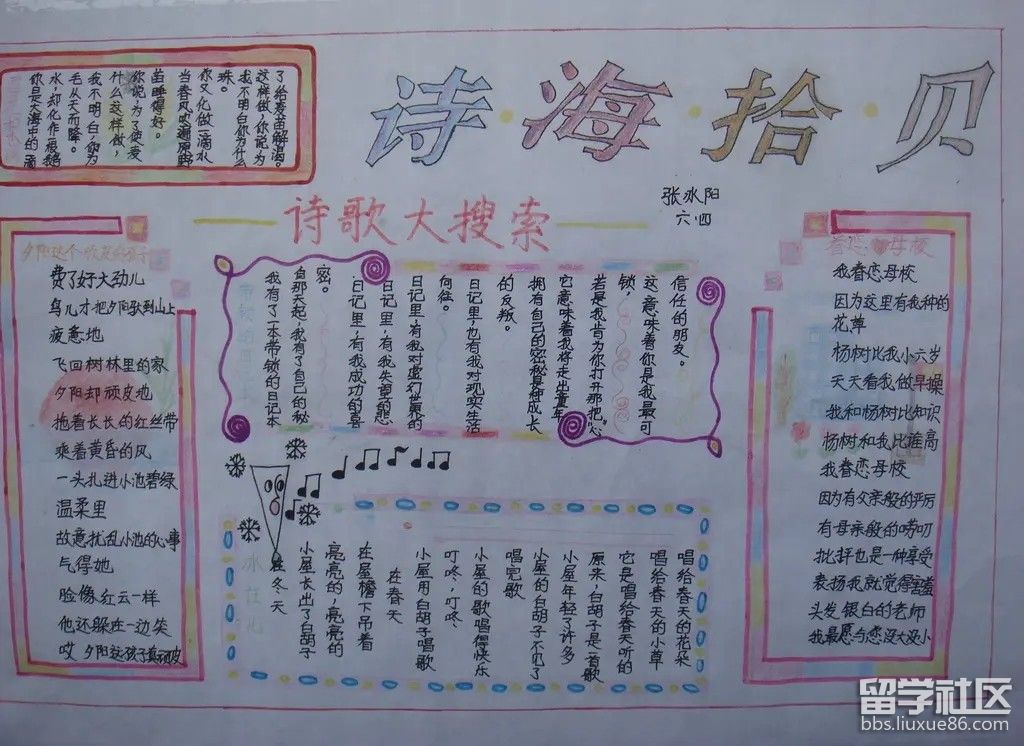 诗·海·拾·贝
张冰阳
六四
诗歌大搜索
你是大海中的一滴
水,却化作
毛从天而降。
我不明白了你为
什么这样做,
你说:为了使麦
苗睡得好。
当春风吹遍原野
你又化做一滴水
珠。
我不明白你为什么
这样做,你说:为
了给麦苗解渴。
夕阳这个顽皮的孩子
费了好大劲儿
鸟儿才把夕阳驮到山上
疲惫地
飞回树林里的家
夕阳却顽皮地
拖着长长的红丝带
乘着黄昏的风
一头扎进小池碧绿
温柔里
故意扰乱小池的心事
气得她
脸像红云一样
他还躲在一边笑
哎 夕阳这孩子真顽皮
带锁的日记本
我有了一本带锁的日记本
自那天起,我有了自己的秘
密。
日记里,有我成功的喜
日记里,有我失望的愁
日记里,有我对虚幻世界的
向往。
日记里,也有我对现实生活
的反叛。
拥有自己的秘密是种成长
它意味着我将走出童年
若是我肯为你打开那把“心
锁”,
这意味着你是我最可
信任的朋友。
在冬天
小屋长出了白胡子
亮亮的,亮亮的
在屋檐下吊着
在春天
小屋用白胡子唱歌
叮咚,叮咚,
小屋的歌唱得快乐
唱完歌
小屋的白胡子不见了
小屋年轻了许多
原来,白胡子是一首歌
它是唱给春天听的
唱给春天的小草
唱给春天的花朵
眷恋母校
我眷恋母校
因为这里有我种的
花草
杨树比我小六岁
天天看我做早操
我和杨树比知识
杨树和我比谁高
我眷恋母校
因为有父亲般的严厉
有母亲般的唠叨
批评也是一种享受
表扬我就觉得害羞
头发银白的老师
我最愿与您没大没小
留学社区
bbs.liuxue86.com